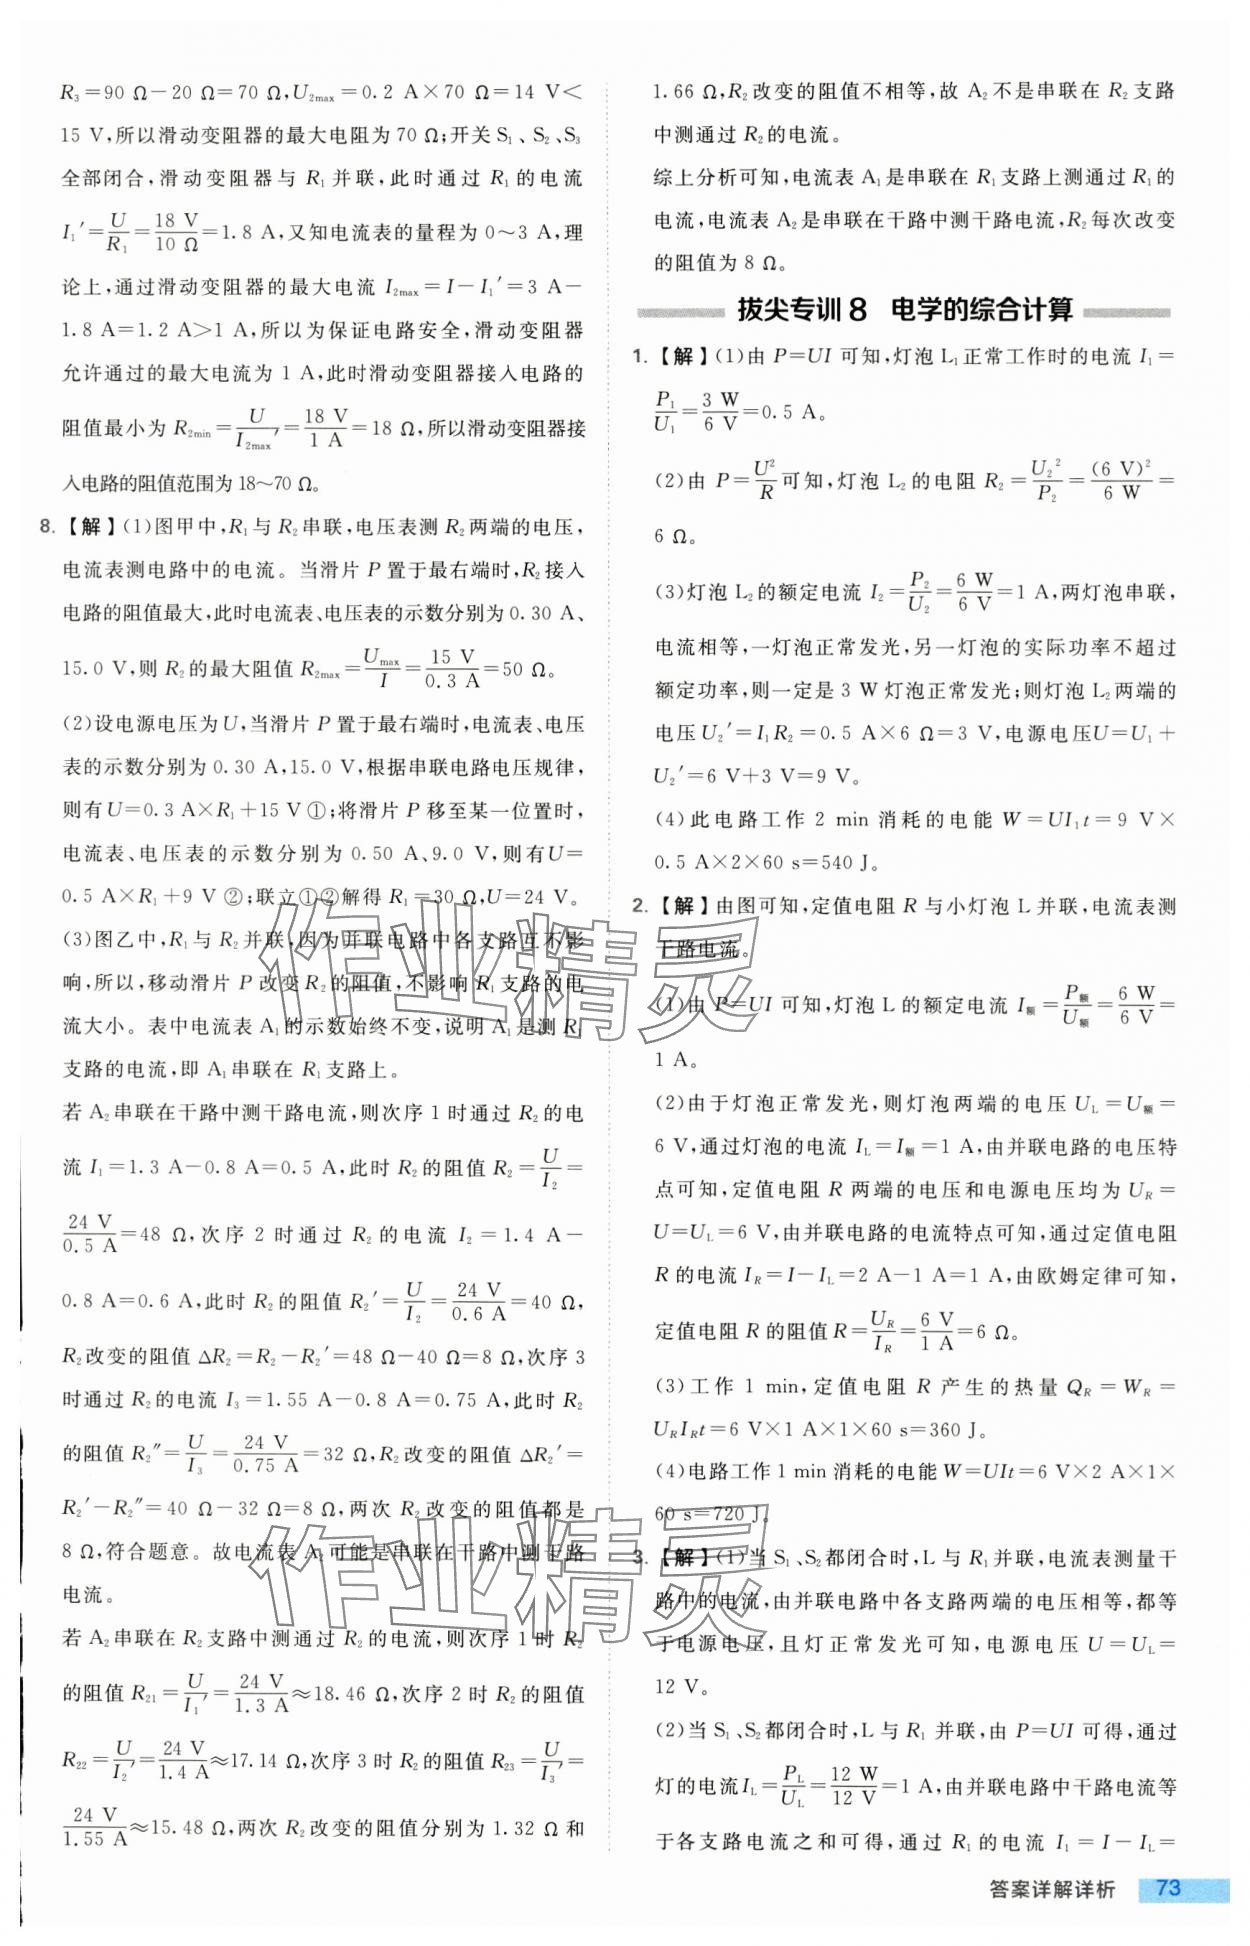 R₃=90 Ω-20 Ω=70 Ω,U₂ₘₐₓ=0.2 A×70 Ω=14 V<
15 V,所以滑动变阻器的最大电阻为70 Ω;开关S₁、S₂、S₃
全部闭合,滑动变阻器与 R₁并联,此时通过 R₁的电流
I₁′=U/R₁=18 V/10 Ω=1.8 A,又知电流表的量程为0~3 A,理
论上,通过滑动变阻器的最大电流 I₂ₘₐₓ=I-I₁′=3 A-
1.8 A=1.2 A>1 A,所以为保证电路安全,滑动变阻器
允许通过的最大电流为1 A,此时滑动变阻器接入电路的
阻值最小为 R₂ₘᵢₙ=U/I₂ₘₐₓ′=18 V/1 A=18 Ω,所以滑动变阻器接
入电路的阻值范围为18~70 Ω。
8.【解】(1)图甲中,R₁与 R₂串联,电压表测 R₂两端的电压,
电流表测电路中的电流。当滑片 P 置于最右端时,R₂接入
电路的阻值最大,此时电流表、电压表的示数分别为0.30 A、
15.0 V,则 R₂的最大阻值 R₂ₘₐₓ=Uₘₐₓ/I=15 V/0.3 A=50 Ω。
(2)设电源电压为U,当滑片 P 置于最右端时,电流表、电压
表的示数分别为0.30 A,15.0 V,根据串联电路电压规律,
则有U=0.3 A×R₁+15 V ①;将滑片 P 移至某一位置时,
电流表、电压表的示数分别为 0.50 A、9.0 V,则有U=
0.5 A×R₁+9 V ②;联立①②解得 R₁=30 Ω,U=24 V。
(3)图乙中,R₁与 R₂并联,因为并联电路中各支路互不影
响,所以,移动滑片 P 改变 R₂的阻值,不影响 R₁支路的电
流大小。表中电流表 A₁的示数始终不变,说明 A₁是测 R₁
支路的电流,即 A₁串联在 R₁支路上。
若 A₂串联在干路中测干路电流,则次序1时通过 R₂的电
流 I₁=1.3 A-0.8 A=0.5 A,此时 R₂的阻值 R₂=U/I₂=
24 V/0.5 A=48 Ω,次序 2 时通过 R₂的电流 I₂=1.4 A-
0.8 A=0.6 A,此时 R₂的阻值 R₂′=U/I₂=24 V/0.6 A=40 Ω,
R₂改变的阻值 ΔR₂=R₂-R₂′=48 Ω-40 Ω=8 Ω,次序3
时通过 R₂的电流 I₃=1.55 A-0.8 A=0.75 A,此时 R₂
的阻值 R₂″=U/I₃=24 V/0.75 A=32 Ω,R₂改变的阻值 ΔR₂′=
R₂′-R₂″=40 Ω-32 Ω=8 Ω,两次 R₂改变的阻值都是
8 Ω,符合题意。故电流表 A₂可能是串联在干路中测干路
电流。
若 A₂串联在 R₂支路中测通过 R₂的电流,则次序1时 R₂
的阻值 R₂₁=U/I₁′=24 V/1.3 A≈18.46 Ω,次序 2 时 R₂的阻值
R₂₂=U/I₂′=24 V/1.4 A≈17.14 Ω,次序 3 时 R₂的阻值 R₂₃=U/I₃′=
24 V/1.55 A≈15.48 Ω,两次 R₂改变的阻值分别为1.32 Ω 和
1.66 Ω,R₂改变的阻值不相等,故 A₂不是串联在 R₂支路
中测通过 R₂的电流。
综上分析可知,电流表 A₁是串联在 R₁支路上测通过 R₁的
电流,电流表 A₂是串联在干路中测干路电流,R₂每次改变
的阻值为8 Ω。
拔尖专训8 电学的综合计算
1.【解】(1)由 P=UI 可知,灯泡 L₁正常工作时的电流 I₁=
P₁/U₁=3 W/6 V=0.5 A。
(2)由 P=U²/R 可知,灯泡 L₂的电阻 R₂=U₂²/P₂=(6 V)²/6 W=
6 Ω。
(3)灯泡 L₂的额定电流 I₂=P₂/U₂=6 W/6 V=1 A,两灯泡串联,
电流相等,一灯泡正常发光,另一灯泡的实际功率不超过
额定功率,则一定是 3 W 灯泡正常发光;则灯泡 L₂两端的
电压U₂′=I₁R₂=0.5 A×6 Ω=3 V,电源电压U=U₁+
U₂′=6 V+3 V=9 V。
(4)此电路工作 2 min 消耗的电能 W=UI₁t=9 V×
0.5 A×2×60 s=540 J。
2.【解】由图可知,定值电阻 R 与小灯泡 L 并联,电流表测
干路电流。
(1)由 P=UI 可知,灯泡 L 的额定电流 I额=P额/U额=6 W/6 V=
1 A。
(2)由于灯泡正常发光,则灯泡两端的电压 U_L=U额=
6 V,通过灯泡的电流 I_L=I额=1 A,由并联电路的电压特
点可知,定值电阻 R 两端的电压和电源电压均为 U_R=
U=U_L=6 V,由并联电路的电流特点可知,通过定值电阻
R 的电流 I_R=I-I_L=2 A-1 A=1 A,由欧姆定律可知,
定值电阻 R 的阻值 R=U_R/I_R=6 V/1 A=6 Ω。
(3)工作 1 min,定值电阻 R 产生的热量 Q_R=W_R=
U_RI_Rt=6 V×1 A×1×60 s=360 J。
(4)电路工作 1 min 消耗的电能 W=UIt=6 V×2 A×1×
60 s=720 J。
3.【解】(1)当 S₁、S₂都闭合时,L 与 R₁并联,电流表测量干
路中的电流,由并联电路中各支路两端的电压相等,都等
于电源电压,且灯正常发光可知,电源电压 U=U_L=
12 V。
(2)当 S₁、S₂都闭合时,L 与 R₁ 并联,由 P=UI 可得,通过
灯的电流I_L=P_L/U_L=12 W/12 V=1 A,由并联电路中干路电流等
于各支路电流之和可得,通过 R₁ 的电流 I₁=I-I_L=
答案详解详析 73
作业精灵
作业精灵